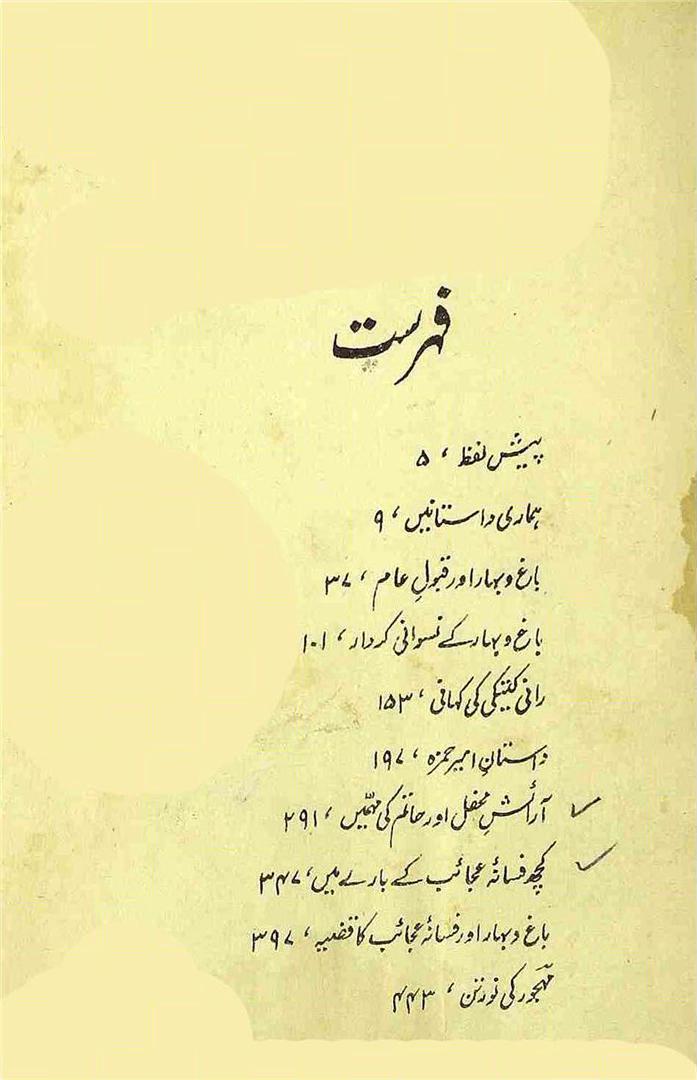 فہرست
پیش لفظ ، ۵
ہماری داستانیں ، ۹
باغ و بہار اور قبولِ عام ، ۳۷
باغ و بہار کے نسوانی کردار ، ۱۰۱
رانی کیتکی کی کہانی ، ۱۵۳
داستانِ امیر حمزہ ، ۱۹۷
آرائشِ محفل اور حاتم کی مہمیں ، ۲۹۱
کچھ فسانۂ عجائب کے بارے میں ، ۳۴۷
باغ و بہار اور فسانۂ عجائب کا قضیہ ، ۳۹۷
مہجور کی نورتن ، ۴۴۳